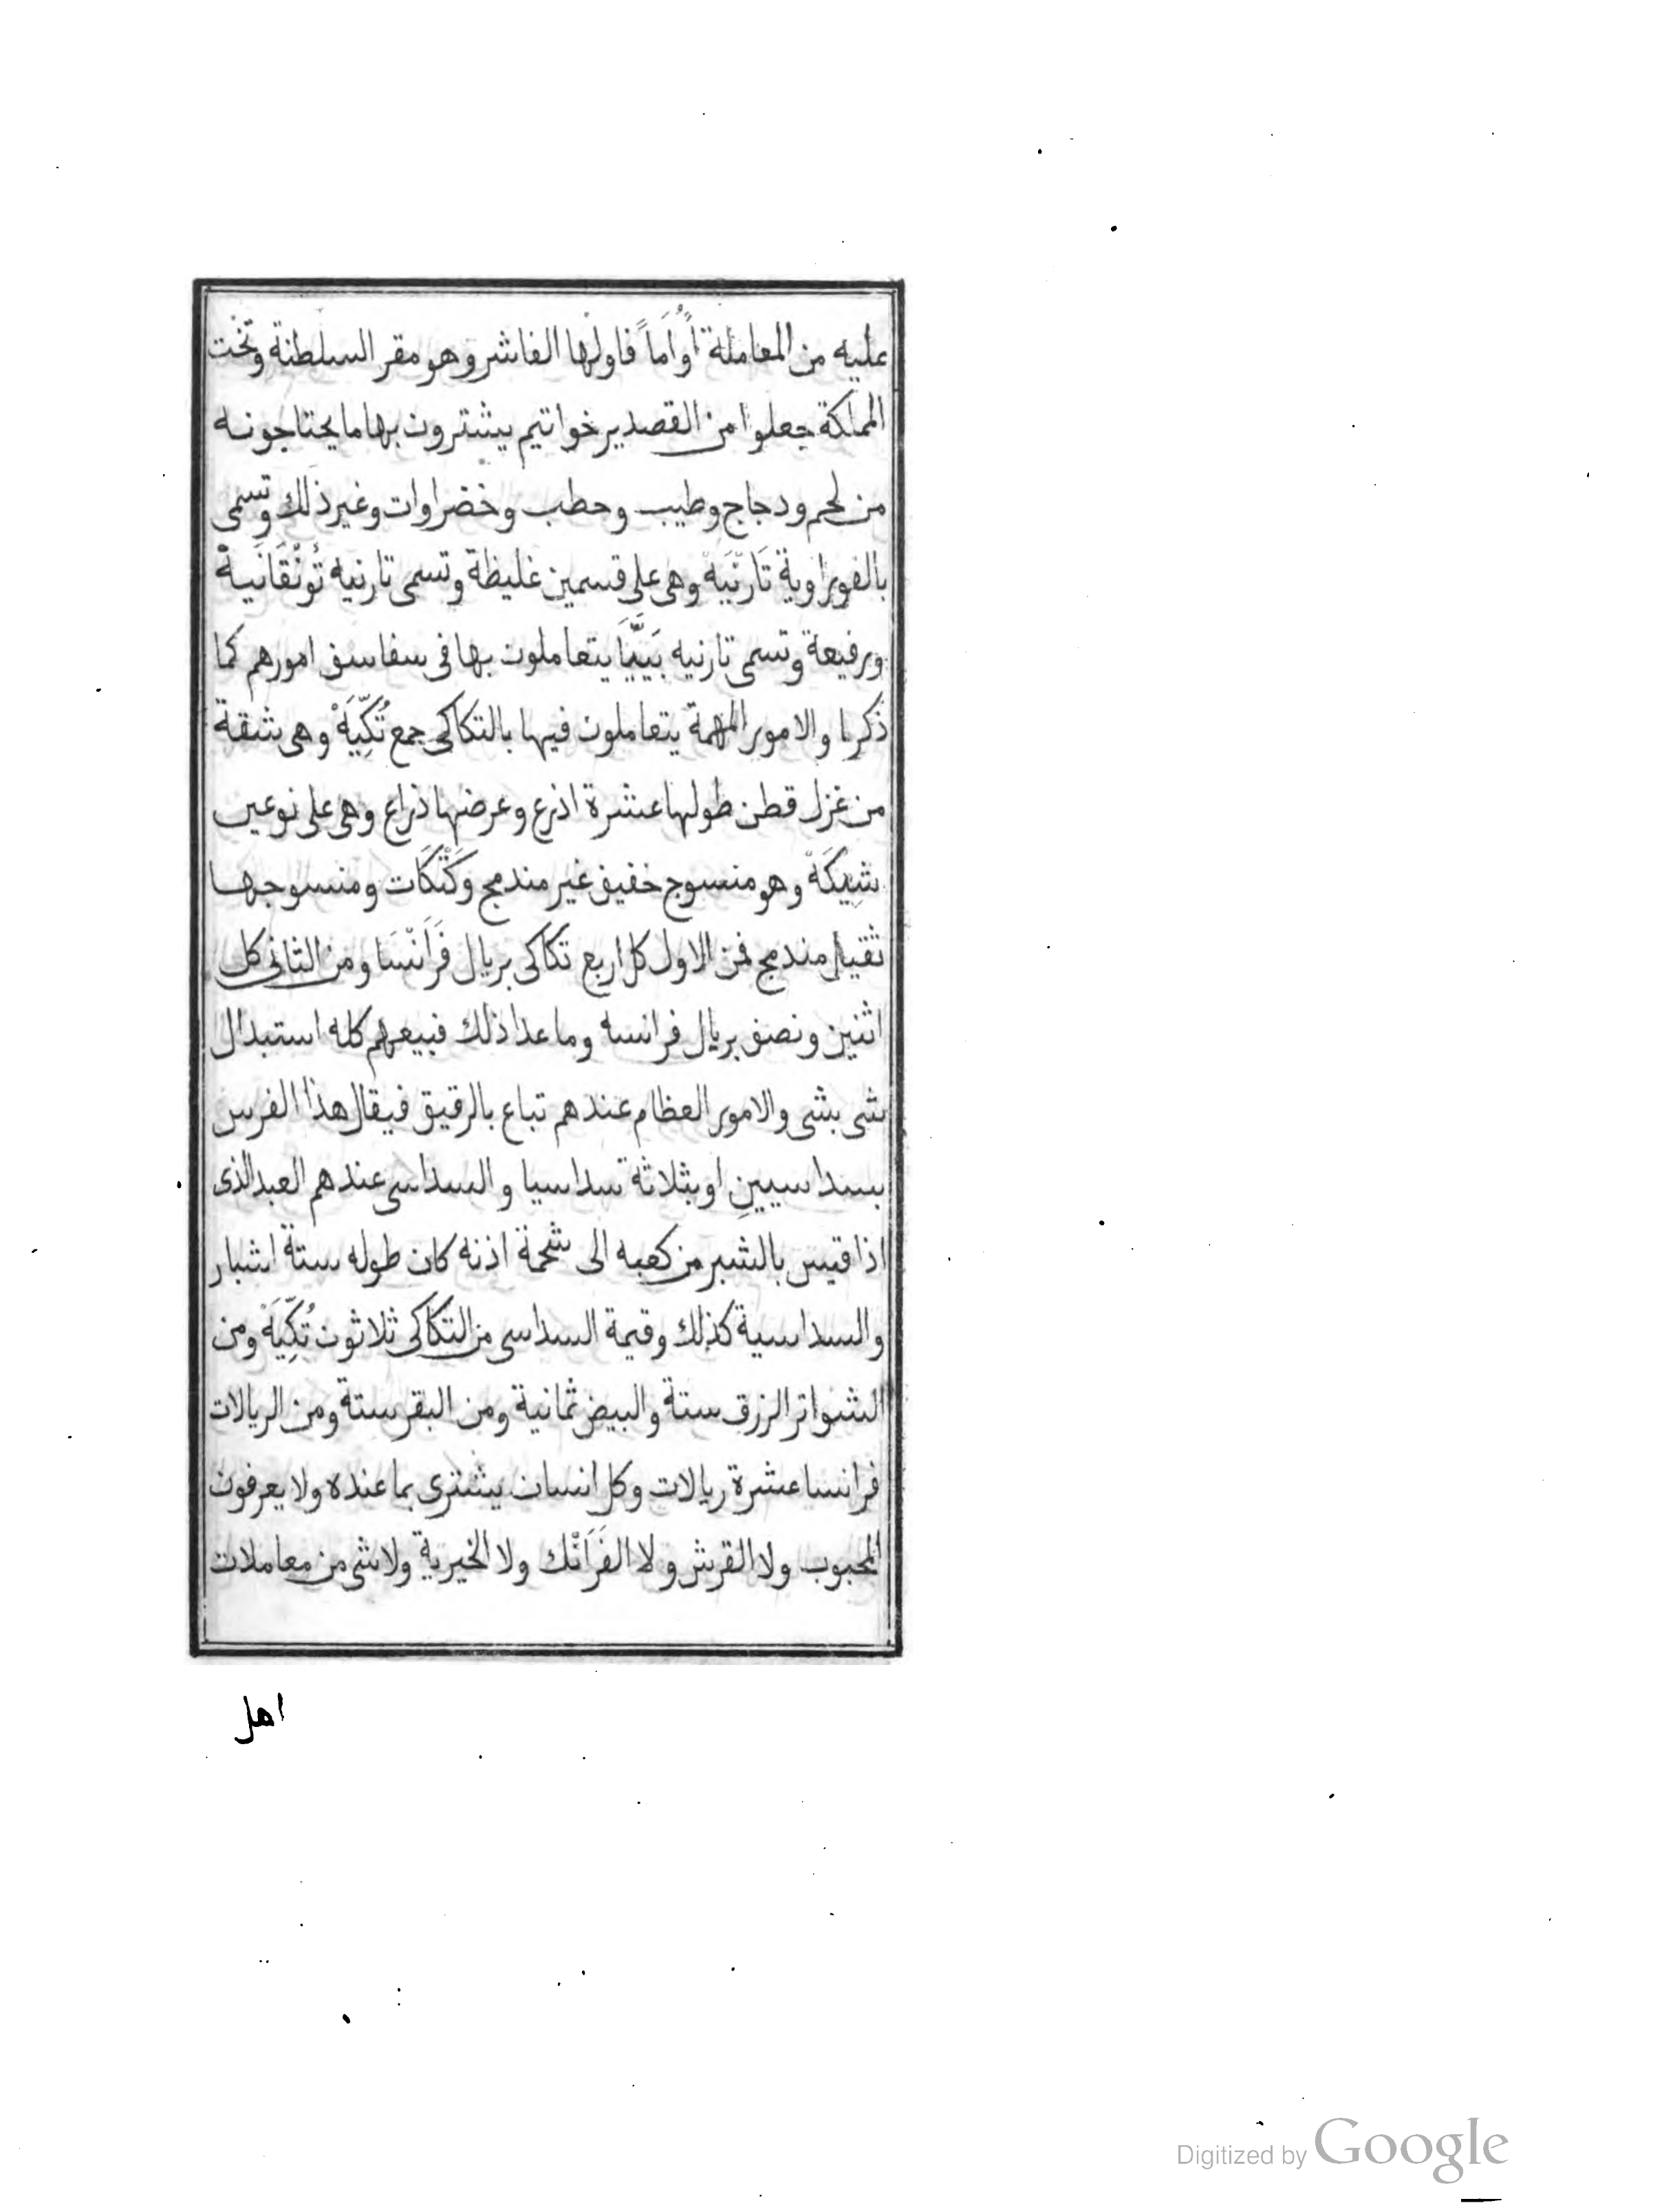 عليه من المعاملة أُوَاماً فاولها الفاشر وهو مقر السلطنة وتَخْت
المملكة جعلوا من القصدير خواتيم يشترون بها ما يحتاجونه
من لحم ودجاج وطيب وحطب وخضراوات وغير ذلك وتسمى
بالفوراوية تَارْنَيَهْ وهى على قسمين غليظة وتسمى تارنيه تُونْقَانَيهْ
ورفيعة وتسمى تارنيه بَيَّيَا يتعاملون بها فى سفاسف امورهم كما
ذكرنا والامور المهمة يتعاملون فيها بالتكاكى جمع تُكِّيَهْ وهى شقة
من غزل قطن طولها عشرة اذرع وعرضها ذراع وهى على نوعين
شِيكَهْ وهو منسوج خفيف غير مندمج وكَتْكَات ومنسوجها
ثقيل مندمج فمن الاول كل اربع تكاكى بريال فَرَانْسَا ومن الثانى كل
اثنين ونصف بريال فرانسه وما عدا ذلك فبيعهم كله استبدال
شى بشى والامور العظام عندهم تباع بالرقيق فيقال هذا الفرس
بسداسيينِ او بثلاثة سداسيا والسداسى عندهم العبد الذى
اذا قيس بالشبر من كعبه الى شحمة اذنه كان طوله ستة اشبار
والسداسية كذلك وقيمة السداسى من التكاكى ثلاثون تُكِّيَهْ ومن
الشواتر الزرق ستة والبيض ثمانية ومن البقر ستة ومن الريالات
فرانسا عشرة ريالات وكل انسان يشترى بما عنده ولا يعرفون
المحبوب ولا القرش ولا الفَرَانْك ولا الخيرية ولا شى من معاملات
اهل
Digitized by Google